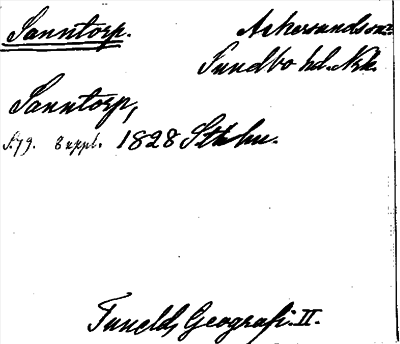 Sanntorp.
Askersunds sn:
Sundbo hd. Nrk.
Sanntorp,
s. 79. 8 uppl. 1828 Sthlm.
Tunelds Geografi. II.